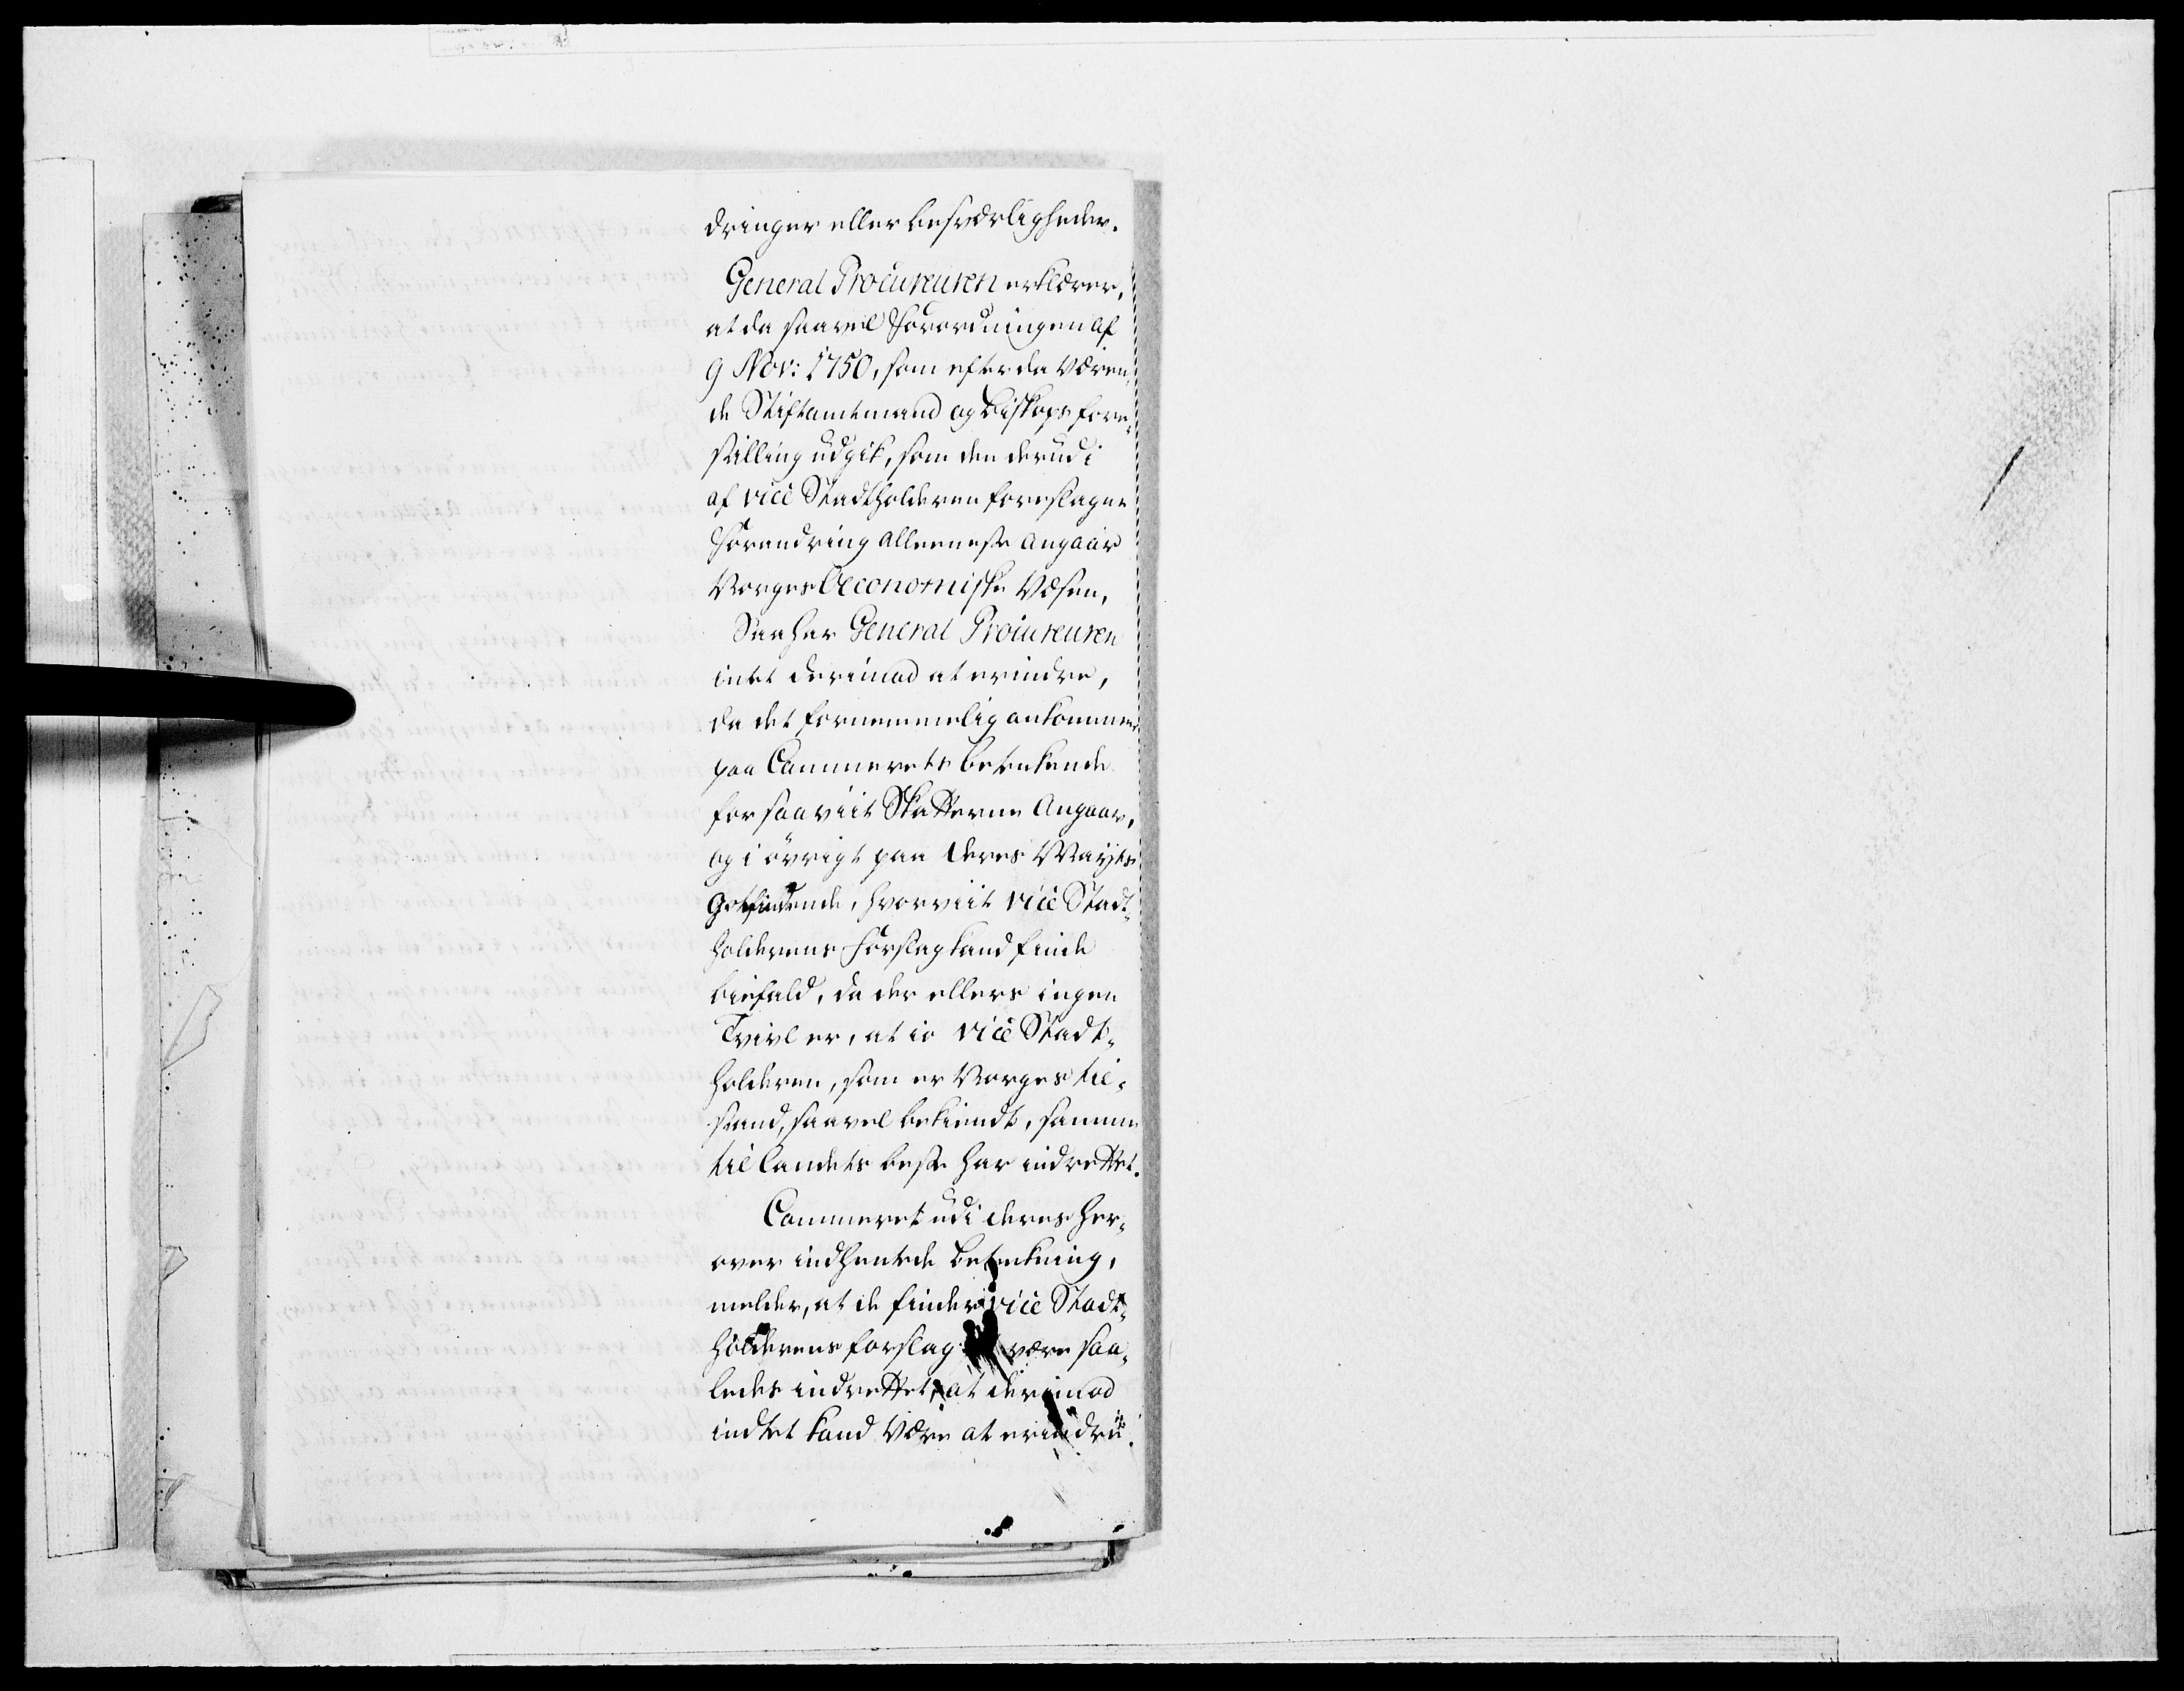 dringer eller besværligheder.
General Procureuren erklærer,
at da saavel Forordningen af
9 Nov: 1750, som efter da væren,
de Stiftamtmand og Biskops fore,
stilling udgik, som den derudi
af vice Stadtholderen foreslagne
Forandring alleeneste angaar
Norges Oeconomiske Væsen,
Saa har General Procureuren
intet derimod at erindre,
da det fornemmelig ankommer
paa Cammerets betenkende
for saaviit Skatterne Angaar,
og i øvrigt paa Deres Mayts
Gotfindende, hvorviit vice Stadt,
holderens Forslag kand finde
biefald, da der ellers ingen
Tvivl er, at io vice Stadt,
holderen, som er Norges til,
stand, saavel bekiendt, samme
til Landets beste har indrettet.
Cammeret udi deres her,
over indhentede betenkning,
melder, at de finder vice Stadt,
holderens forslag at være saa,
ledes indrettet, at derimod
indtet kand være at erindre.